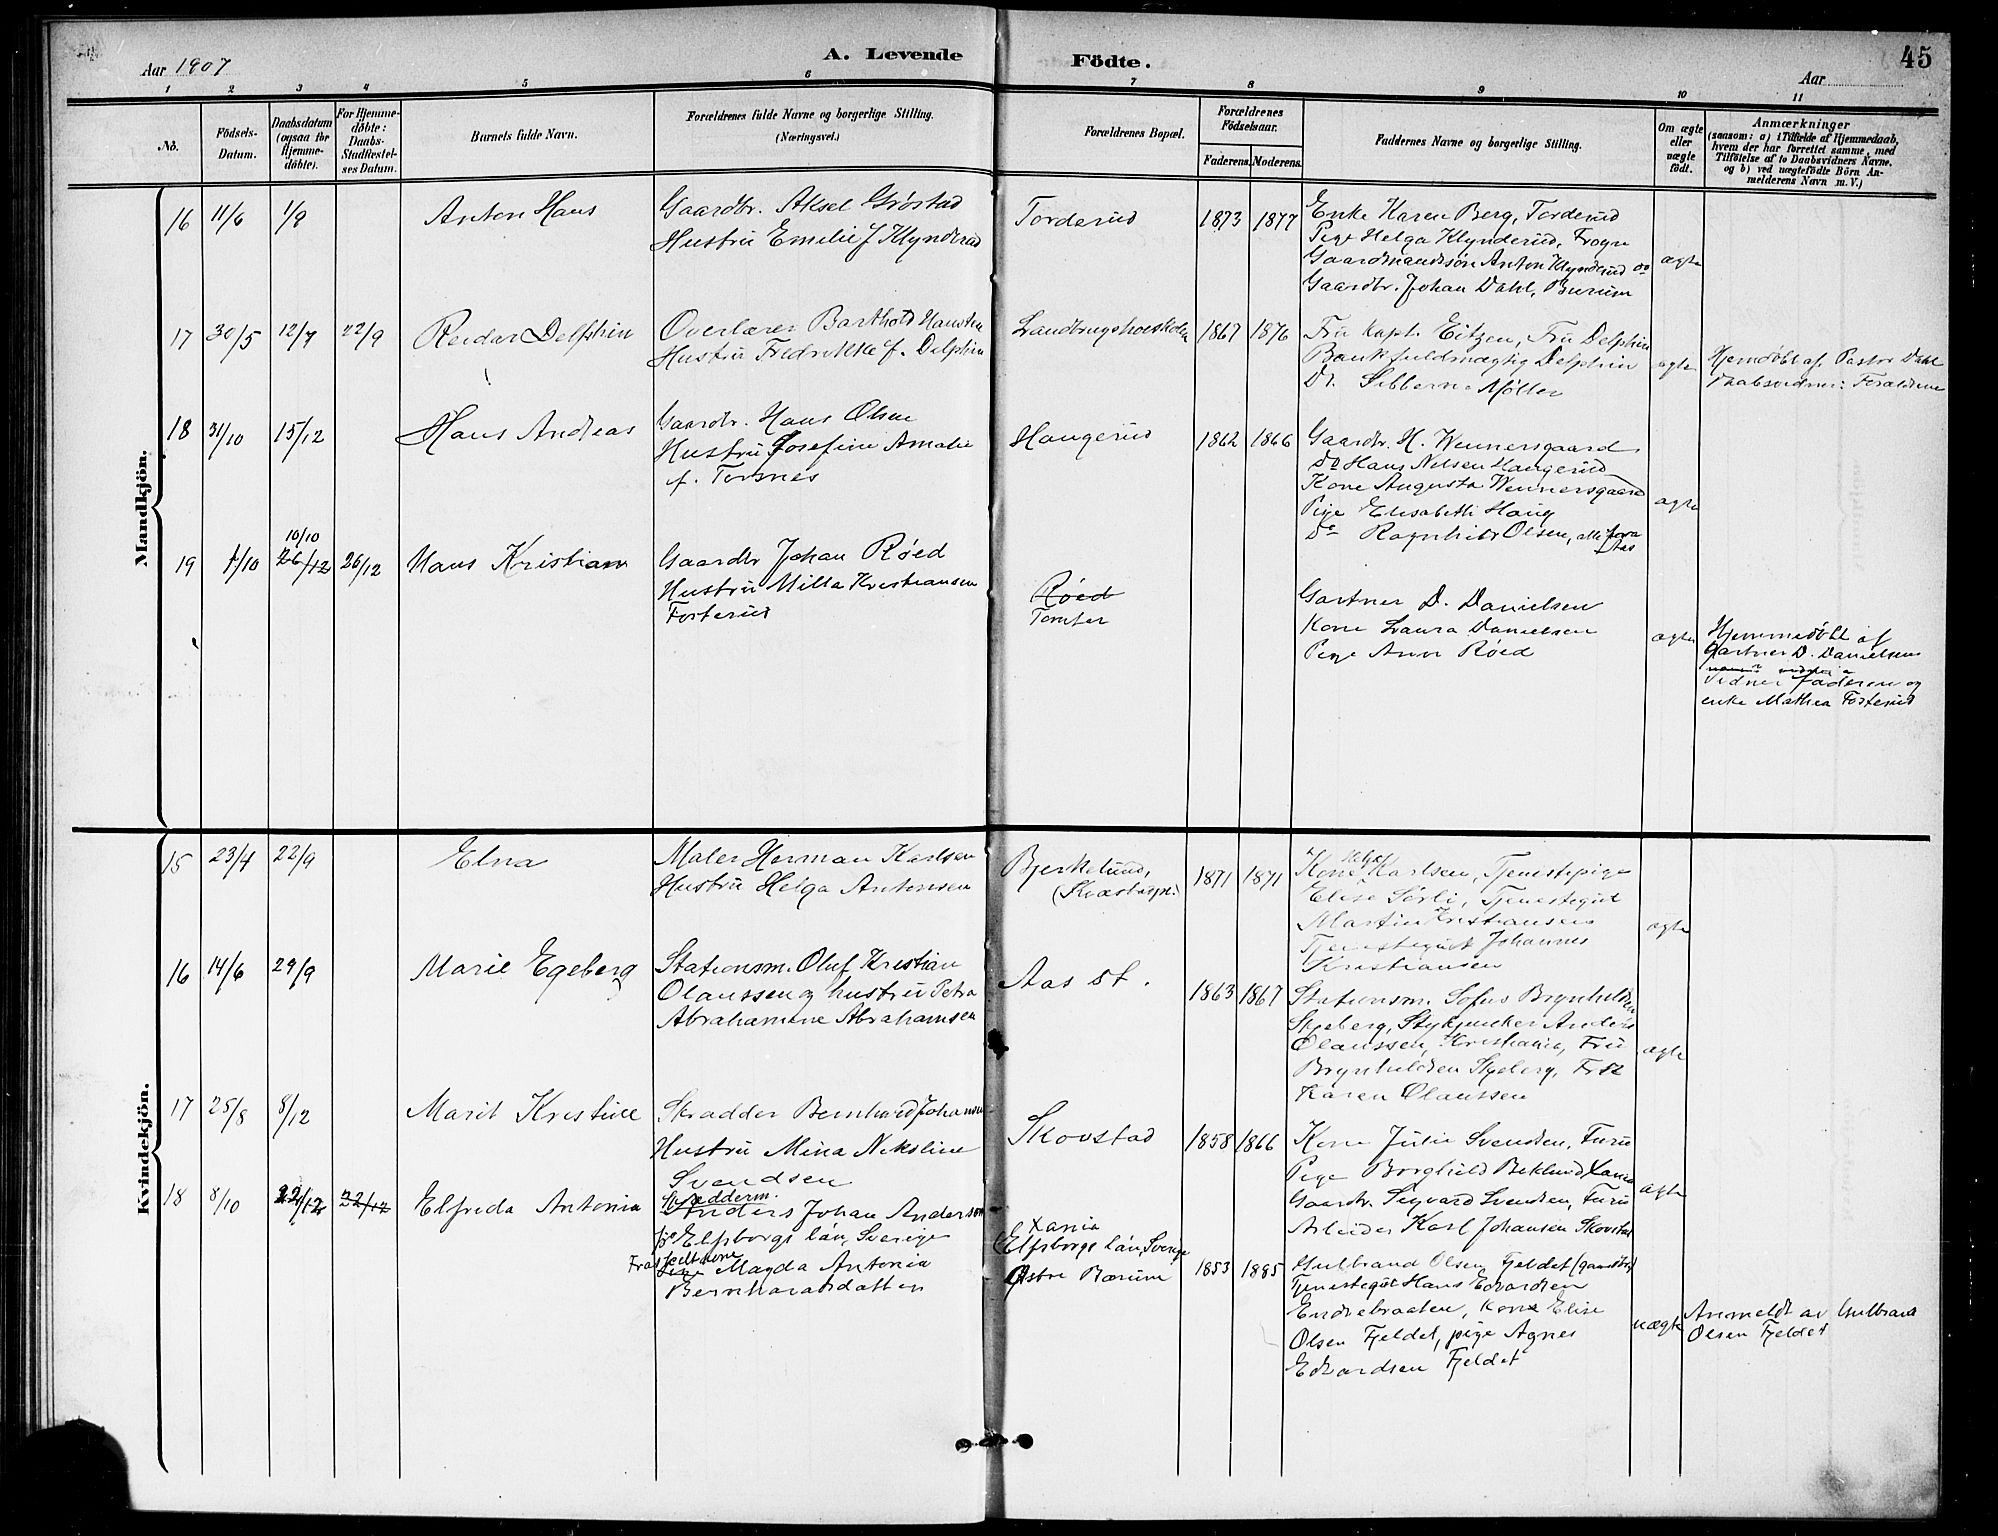 45
Aar 1907
A. Levende
Födte.
Aar
1 2 3 4 5 6 7 8 9 10 11
No.
Födsels-
Datum.
Daabsdatum
(ogsaa for
Hjemme-
döbte).
For Hjemme-
döbte:
Daabs-
Stadfæstel-
ses Datum.
Barnets fulde Navn.
Forældrenes fulde Navne og borgerlige Stilling.
(Næringsvei.)
Forældrenes Bopæl.
Forældrenes
Födselsaar.
Faderens. Moderens.
Faddernes Navne og borgerlige Stilling.
Om ægte
eller
uægte
födt.
Anmærkninger
(saasom: a) i Tilfælde af Hjemmedaab,
hvem der har forrettet samme, med
Tilföielse af to Daabsvidners Navne,
og b) ved uægtefödte Börn An-
melderens Navn m. V.)
Mandkjön.
16 11/6 1/9
Anton Hans
Gaardbr. Aksel Grøstad
Hustru Emilie f Klynderud
Torderud
1873 1877
Enke Karen Berg, Torderud
Pige Helga Klynderud, Frogn
Gaardmandssøn Anton Klynderud do
Gaardbr. Johan Dahl, Burum
ægte
17 30/5 12/7 22/9
Reidar Delphin
Overlærer Barthold Hansteen
Hustru Fredrikke f. Delphin
Landbrugshøiskolen
1867 1876
Fru Kapt. Eitzen, Fru Delphin
Bankfuldmægtig Delphin
Dr. Sibbern Møller
ægte
Hjemdøbt af Pastor Dahl
Daabsvidner: Forældrene
18 31/10 15/12
Hans Andreas
Gaardbr. Hans Olsen
Hustru Josefine Amalie
f. Torsnes
Haugerud
1862 1866
Gaardbr. H. Wennersgaard
Do Hans Nilsen Haugerud
Kone Augusta Wennersgaard
Pige Elisabeth Haug
Do Ragnhild Olsen, alle fra
Aas
ægte
19 1/10
10/10
26/12 26/12
Hans Kristian
Gaardbr Johan Røed
Hustru Milla Kristiansen
Fosterud
Røed
Tomter
Gartner D. Danielsen
Kone Laura Danielsen
Pige Anna Røed
ægte
Hjemmedøbt af
gartner D. Danielsen
Vidner faderen og
enke Mathea Fosterud
Kvindekjön.
15 23/4 22/9
Elna
Maler Herman Karlsen
Hustru Helga Antonsen
Bjerkelund,
(Kvæstadpl.)
1871 1871
Helga
Kone Karlsen, Tjenestepige
Elise Sørli, Tjenestegut
Martin Kristiansen
Tjenestegut Johannes
Kristiansen
ægte
16 14/6 29/9
Marie Egeberg
Stationsm. Oluf Kristian
Olaussen og hustru Petra
Abrahamine Abrahamsen
Aas st.
1863 1867
Stationsm. Sofus Brynhildsen
Skjeberg, Stykjunker Anders
Olaussen, Kristiania, Fru
Brynhildsen Skjeberg, Frk
Karen Olaussen
ægte
17 25/8 8/12
Marit Kristine
Skrædder Bernhard Johansen
Hustru Mina Nikoline
Svendsen
Skovstad
1858 1866
Kone Julie Svendsen, Furu
Pige Borghild Beklund Xania
Gaardbr. Sigvard Svendsen, Furu
Arbeider Karl Johansen Skovstad
ægte
18 8/10 22/12 22/12
Elfrida Antonia
Skrædderm.
Anders Johan Anderson
fra Elfsborgs län, Sverige
Fraskilt kone
Magda Antonia
Bernhardsdatter
Xania
(Elfsborgs län, Sverige
Østre Bærum
1853 1885
Gulbrand Olsen Fjeldet (gaardbr)
Tjenestegut Hans Edvardsen
Endrebraaten, Kone Elise
Olsen Fjeldet, pige Agnes
Edvardsen Fjeldet
uægte
Anmeldt av Gulbrand
Olsen Fjeldet